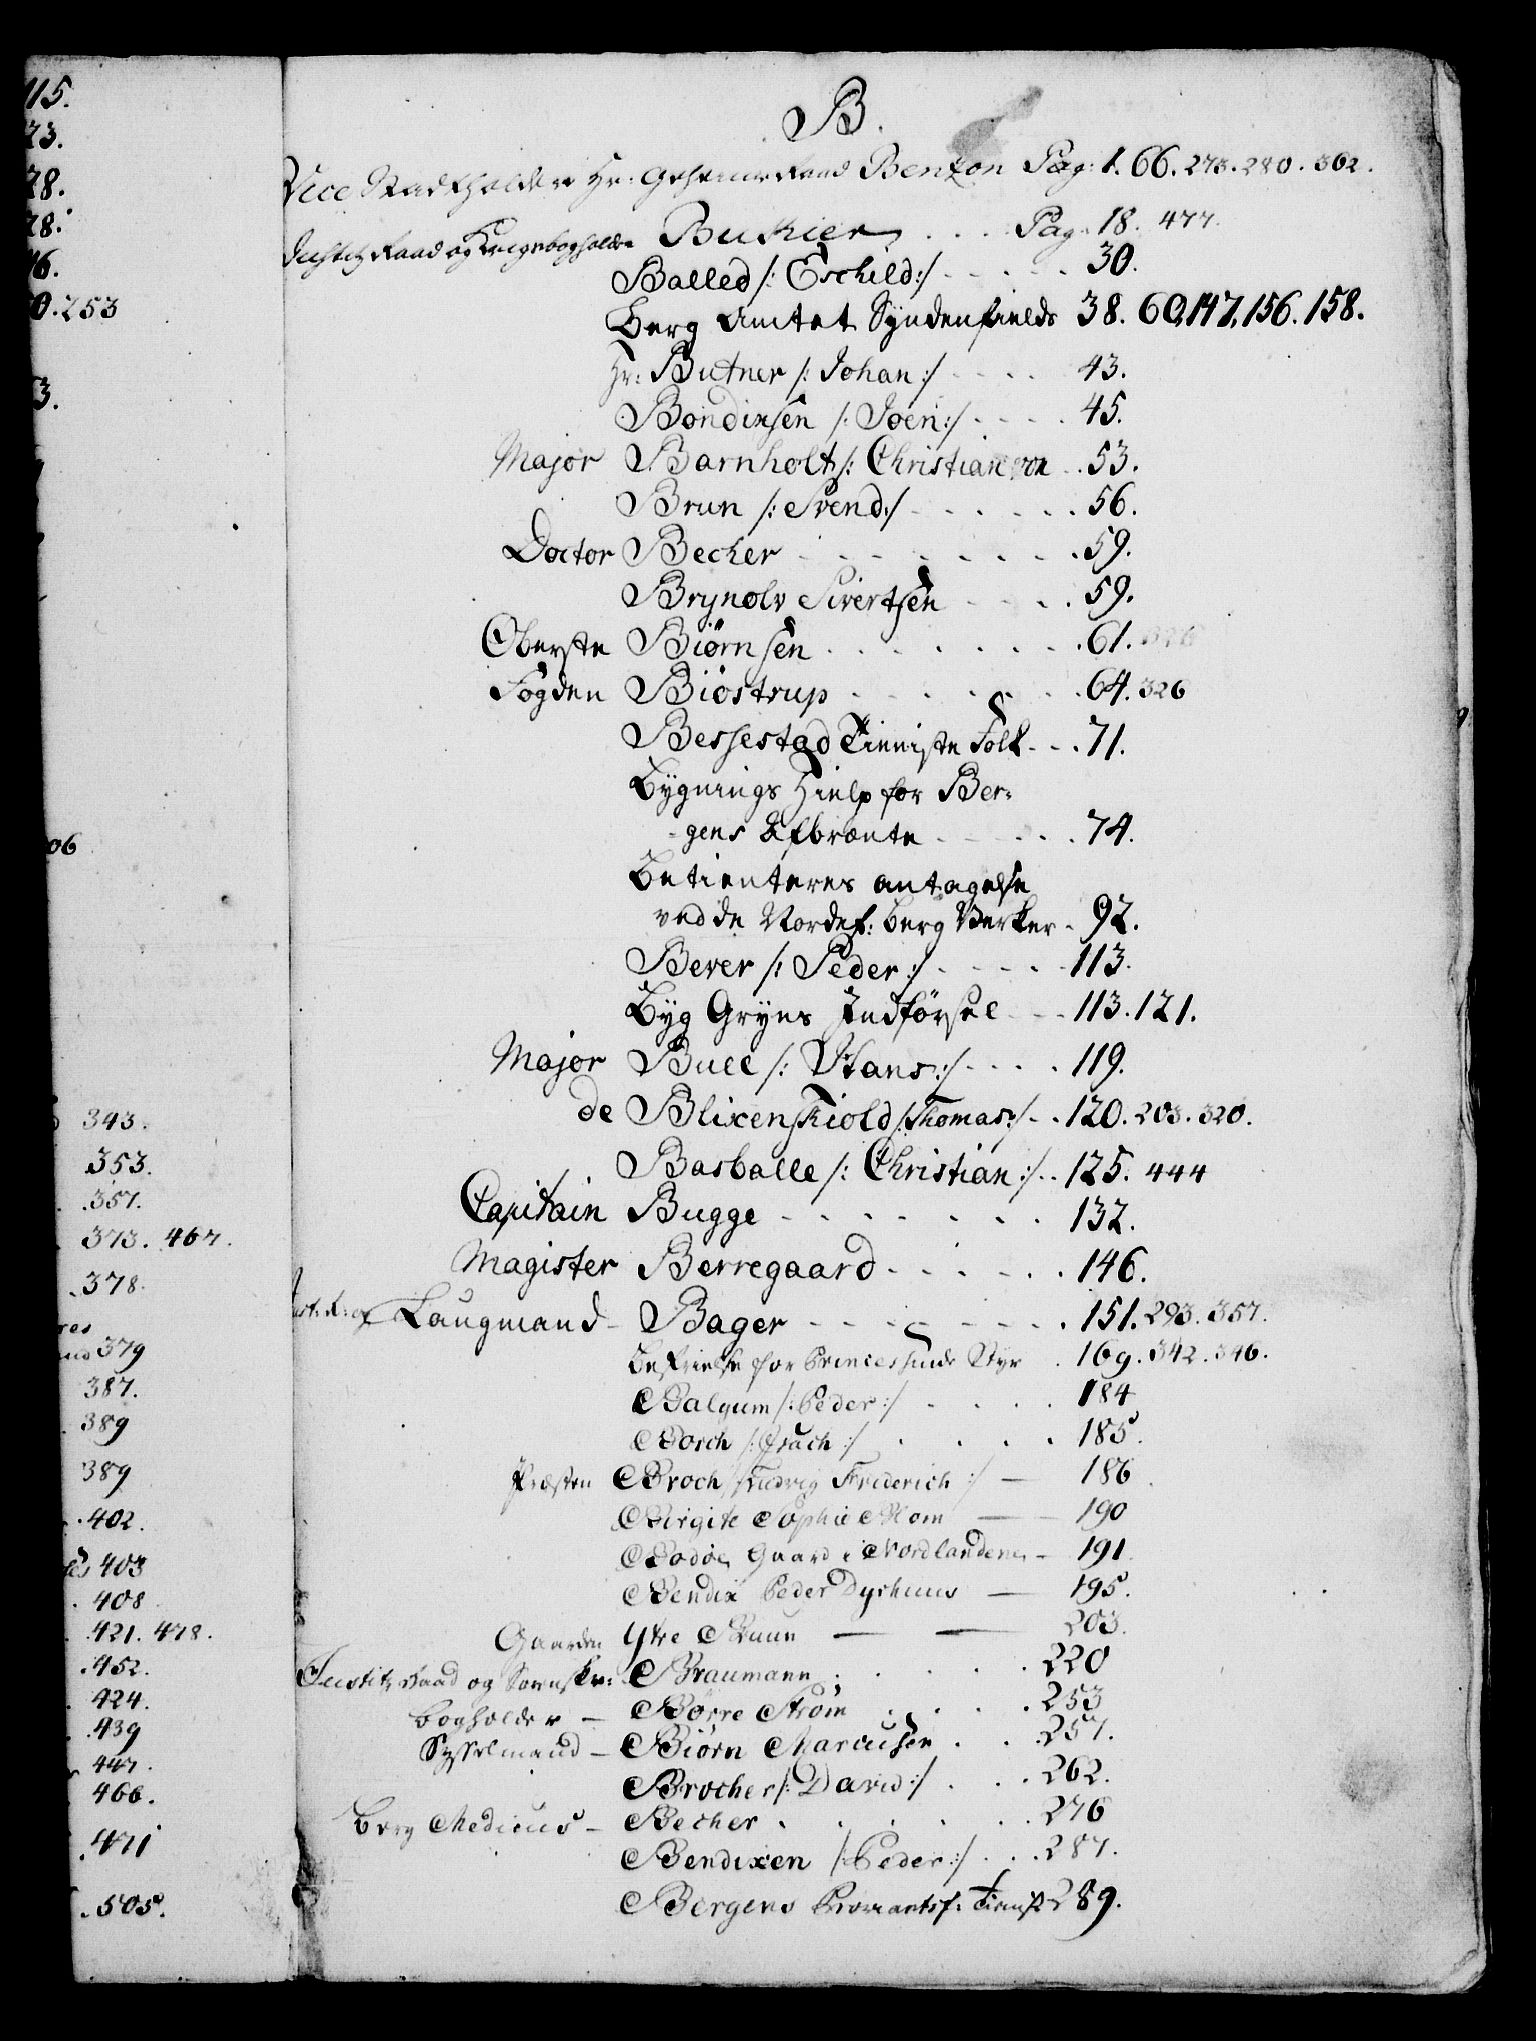 115.
73.
78.
78.
46.
0.253
3.
06
343.
353.
357.
373. 467.
378.
res
379
387.
389
389
402.
403
408
421. 478.
452.
424.
439
447.
466.
471
505.
B.
Vice Stadtholder Hr: Geheime Raad Benzon Pag: 1. 66. 273. 280. 302.
Justitz Raad og Krigsbogholder Bukier . . . Pag. 18. 477.
Balled /: Eschild :/ - - - - - 30.
Berg Amtet Syndenfields 38. 60, 147, 156. 158.
Hr: Butner /: Johan :/ - - - - 43.
Bondixsen /: Joen :/ - - - - 45.
Major Barnholt /: Christian von . . 53.
Brun /: Svend :/ - - - - - 56.
Doctor Becher - - - - - - 59.
Brynolv Sivertsen - - - 59.
Oberste Biørnsen . . . . . . 61.
Fogden Biøstrup . . . . . . 64. 326
Bessestad Tieniste Folk - - . 71.
Bygnings Hielp for Ber:
-gens Afbrænte - - - - 74.
Betienteres antagelse
ved de Nordenf: Berg Værker - 92.
Bever /: Peder :/ - - - - - 113.
Byg Gryns Indførsel - - - 113. 121.
Major Bull /: Hans :/ - - - . 119.
de Blixenskiold /: Thomas :/ - . 120. 203. 320.
Basballe /: Christian :/ . . 125. 444
Capitain Bugge - - - - - - 132.
Magister Berregaard - - - - - . 146.
Just: R: og Laugmand - Bager - - - - - - . 151. 293. 357.
Befrielse for Princessinde Styr . 169. 342. 346.
Balgum /: Peder :/ . . . . 184
Borch /: Isach :/ . . . . 185.
Præsten Broch /: Ludvig Friderich :/ — 186
Birgite Sophie Hom — — 190
Bodøe Gaard i Nordlandene - 191
Bendix Peder Dychuus — 195.
Gaarden Ytre Bruun — — 203.
Justitz Raad og Sorenskr: Braumann . . . . . 220
Bogholder — Børre Strøm . . . . 253
Sysselmand — Biørn Marcusen . . . 257.
Brocher /: David :/ . . . 262.
Berg Medicus — Becher . . . . . 276
Bendixen /: Peder :/ . . . 287.
Bergens Proviantsf: Tienst 289.